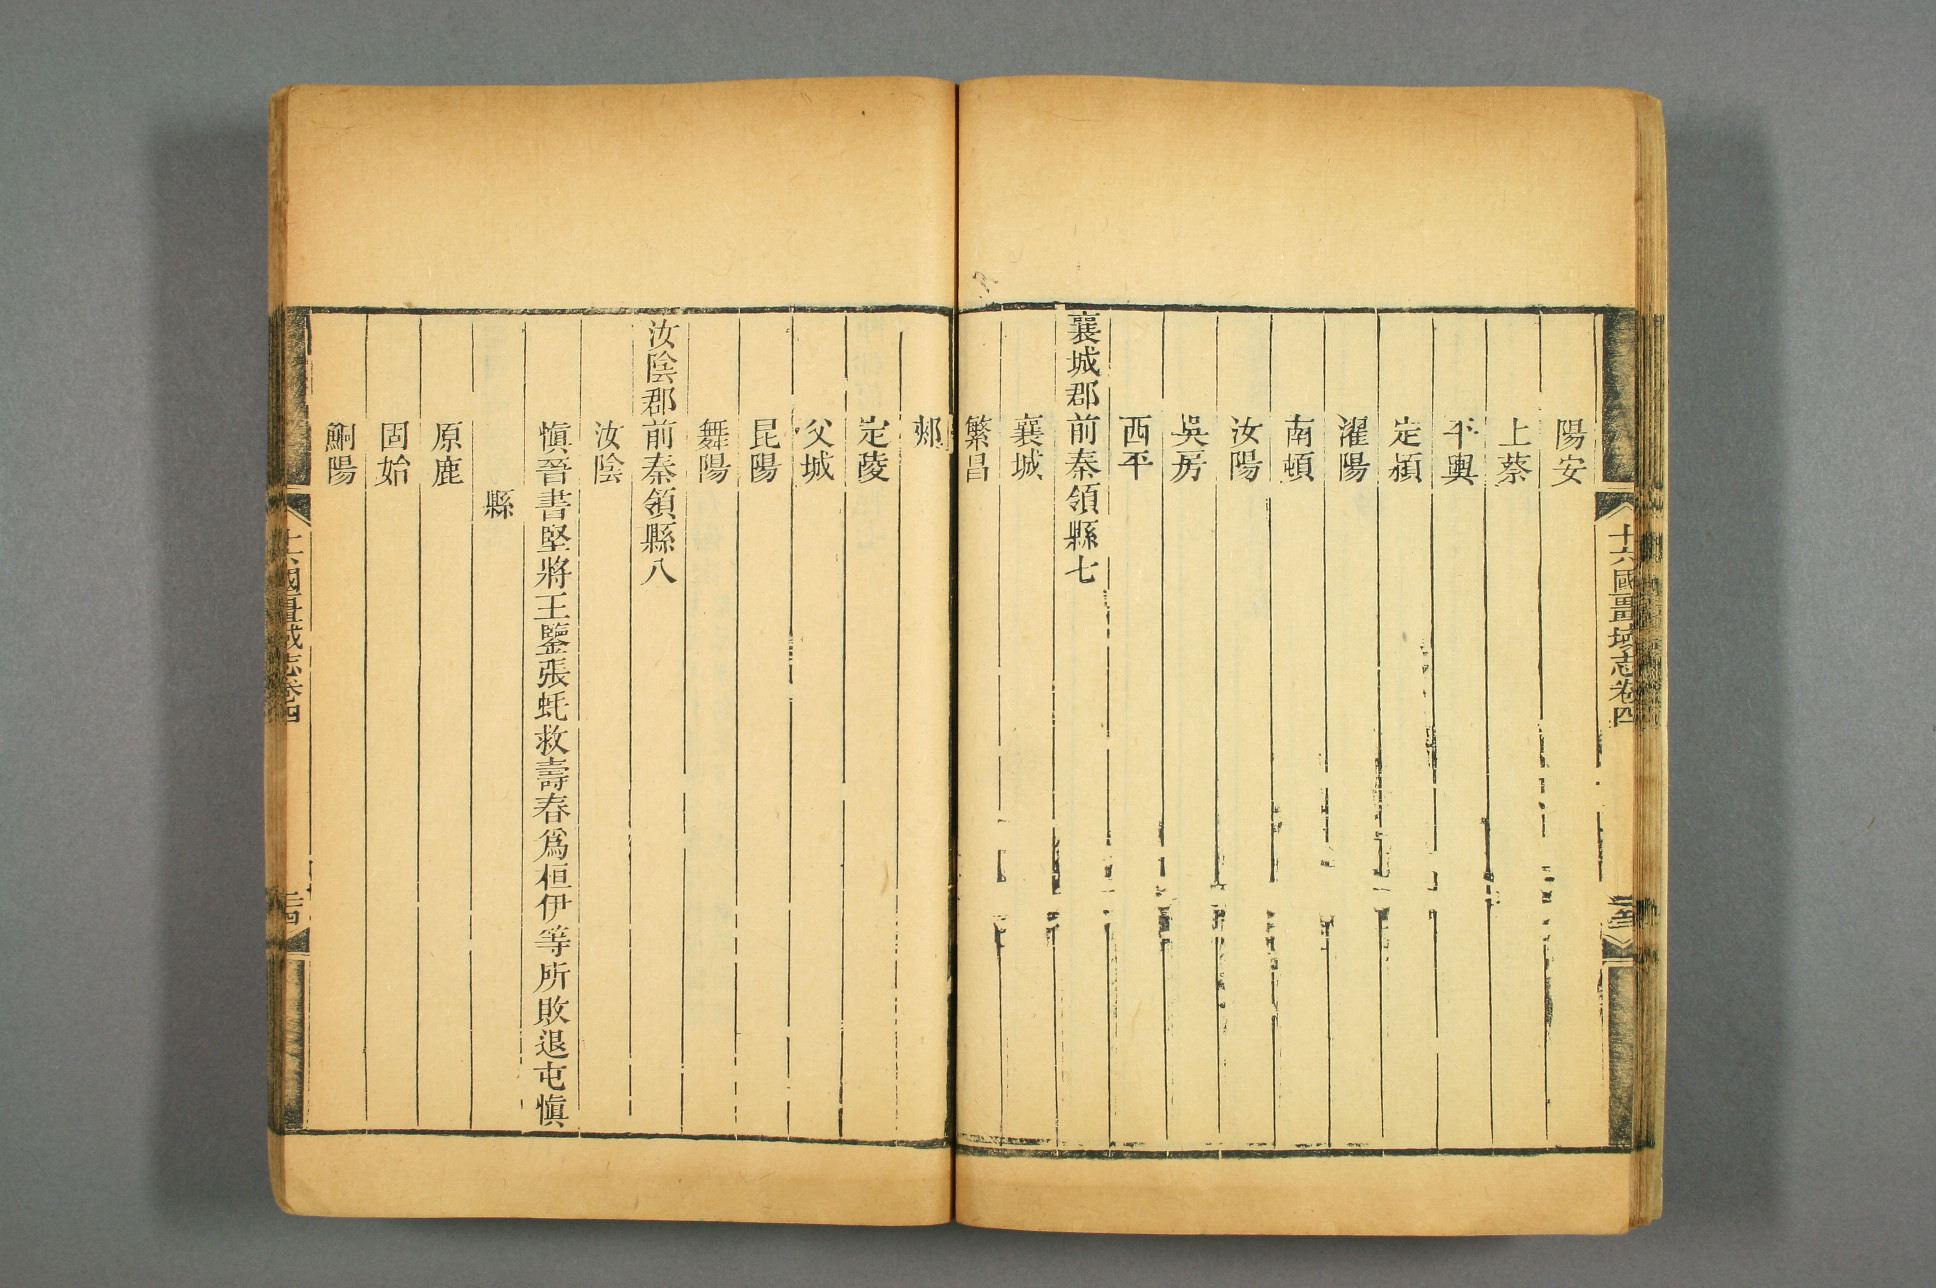 十六國畺域志卷四
陽安
上蔡
平輿
定潁
濯陽
南頓
汝陽
吳房
西平
襄城郡前秦領縣七
襄城
繁昌
郟
定陵
父城
昆陽
舞陽
汝陰郡前秦領縣八
汝陰
愼晉書堅將王鑒張蚝救壽春爲桓伊等所敗退屯愼
縣
原鹿
固始
鮦陽
十六國畺域志卷四